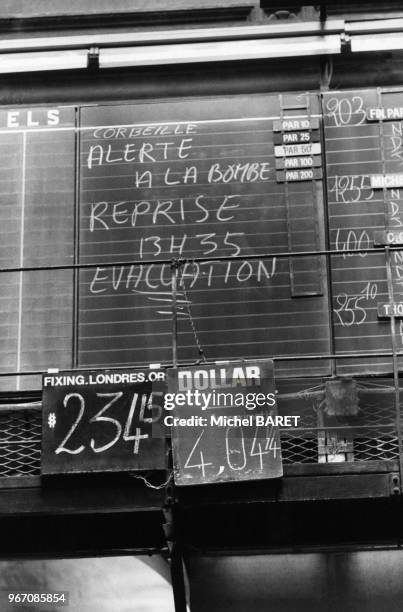 ELS
CORBEILLE
ALERTE
A LA BOMBE
REPRISE
13H35
EVACUATION
PAR 10
PAR 25
PAR 50
PAR 100
PAR 200
903
FIN.PAR
1255
MICHE
400
855 10
FIXING.LONDRES.OR
$ 234 15
DOLLAR
4,04 14
gettyimages
Michel BARET
967085854